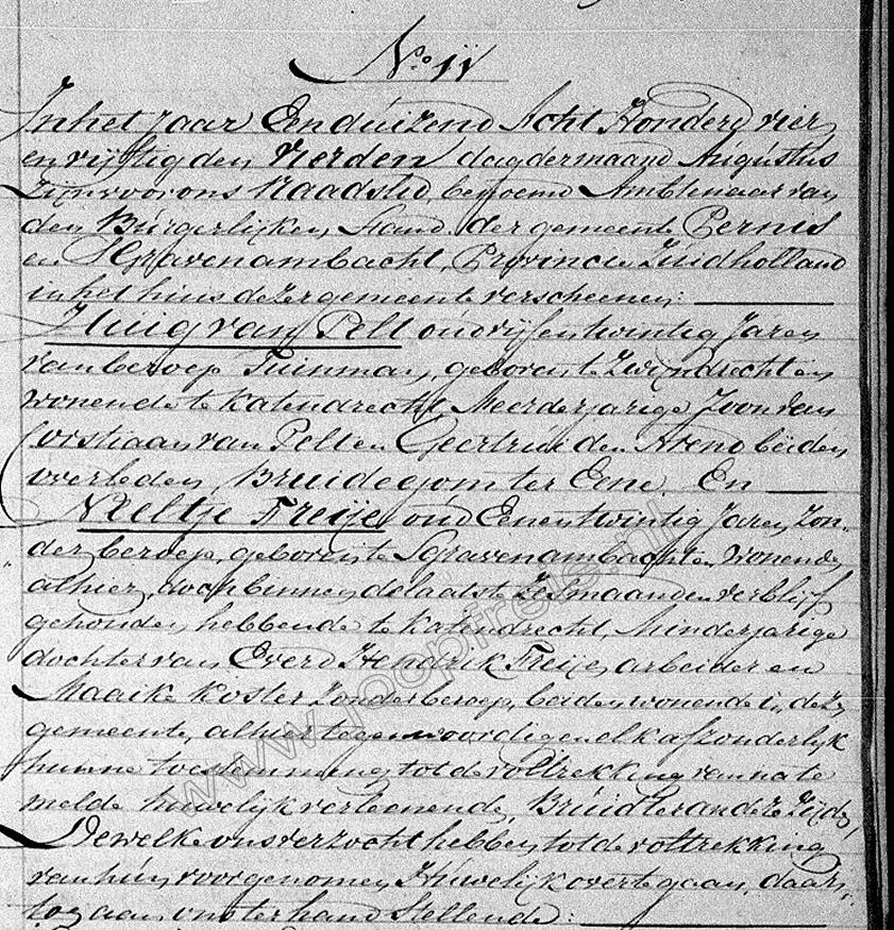 No 11
In het jaar Een duizend Acht Honderd vier
en vijftig den vierden dag der maand Augustus
zijn voor ons Raadslid, benoemd Ambtenaar van
den Burgerlijken Stand der gemeente Pernis
en SGravenambacht, Provincie Zuidholland
in het huis dezer gemeente verscheenen:
Huig van Pelt oud vijfentwintig Jaren
van beroep Tuinman, geboren te Zwijndrecht en
wonende te Katendrecht, Meerderjarige Zoon van
Corstiaan van Pelt en Geertrui den Arend beiden
overleden, Bruidegom ter Eene. En
Neeltje Freije, oud Eenentwintig Jaren Zon-
der beroep, geboren te Sgravenambacht en wonende
alhier, doch binnen de laatste zes maanden verblijf
gehouden hebbende te Katendrecht, Minderjarige
dochter van Everd Hendrik Freije, arbeider en
Maaike Koster zonder beroep, beiden wonende in deze
gemeente, alhier tegenwoordig en elk afzonderlijk
hunne toestemming tot de voltrekking van na te
melde huwelijk verleenende, Bruid ter andere Zijde,
Dewelke ons verzocht hebben tot de voltrekking
van hun voorgenomen Huwelijk over te gaan, daar
toe aan ons ter hand Stellende:
www.joopfreie.nl